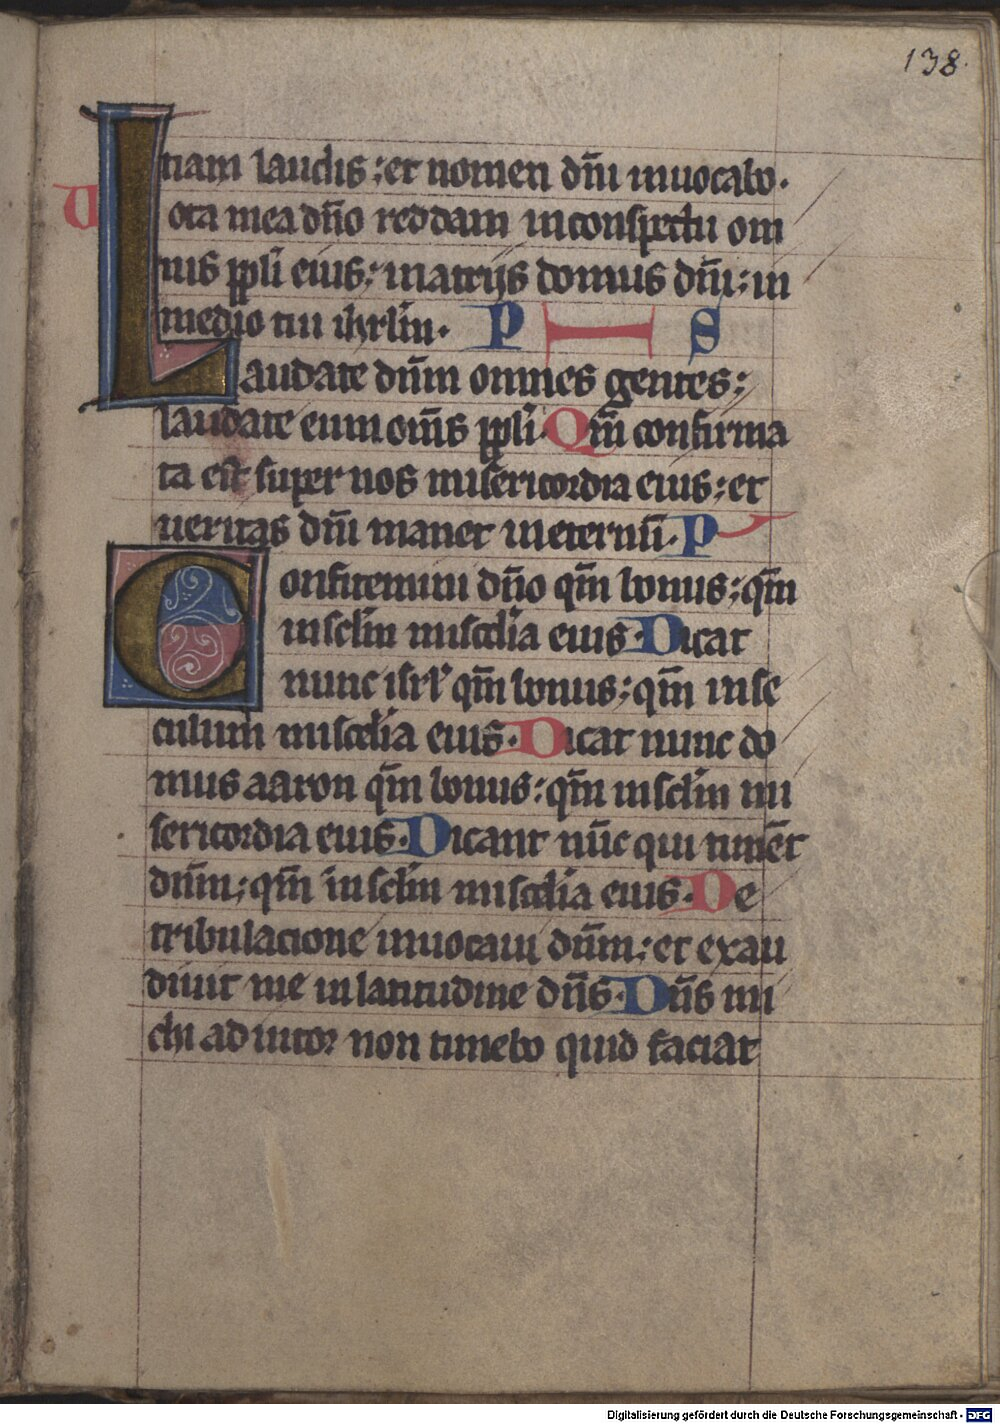 138.
tiam laudis ; et nomen dn̄i inuocabo .
Uota mea dn̄o reddam in conspectu om
nis ppl̓i eius ; in atrijs domus dn̄i ; in
medio tui ihrl̓m . P S
Laudate dn̄m omnes gentes ;
laudate eum om̄s ppl̓i . Qm̄ confirma
ta est super nos misericordia eius ; et
ueritas dn̄i manet in eternū . P
Confitemini dn̄o qm̄ bonus ; qm̄
in scl̓m miscd̓ia eius . Dicat
nunc isrl̓ qm̄ bonus ; qm̄ in se
culum miscd̓ia eius . Dicat nunc do
mus aaron qm̄ bonus ; qm̄ in scl̓m mi
sericordia eius . Dicant nūc qui timēt
dn̄m ; qm̄ in scl̓m miscd̓ia eius . De
tribulacione inuocaui dn̄m ; et exau
diuit me in latitudine dn̄s . Dn̄s mi
chi adiutor non timebo quid faciat
Digitalisierung gefördert durch die Deutsche Forschungsgemeinschaft - DFG